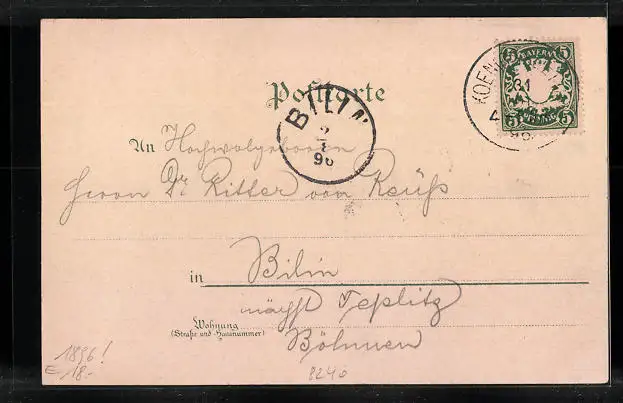 5 BAYERN 5
5 PFENNIG 5
31
4
96
Postkarte
BILIN
2
8
96
An Hochwolgeboren
Herrn Dr. Ritter von Reuß
in Bilin
nächst Teplitz
Wohnung
(Straße und Hausnummer)
Böhmen
1896!
E 18.-
8240